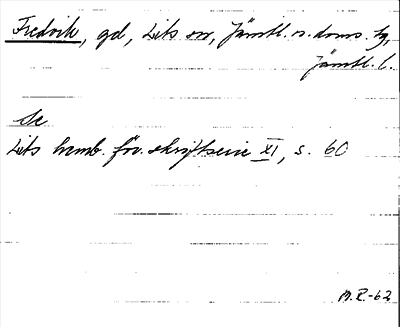 Fredvik, gd, Lits sn, Jämtl. n. doms. tg,
Jämtl. l.
Se
Lits hemb. för. skriftserie XI, s. 60
M.R.-62